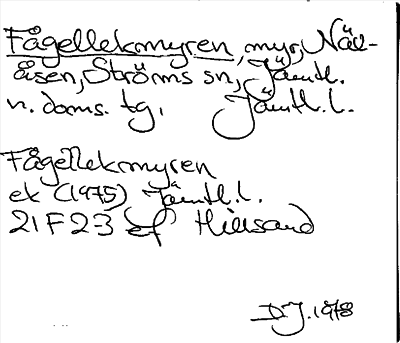 Fågellekmyren, myr, Näv-
åsen, Ströms sn, Jämtl.
n. doms. tg. Jämtl. l.
Fågellekmyren
ek (1975) Jämtl. l.
21F 23 ef Hillsand
D.J. 1978